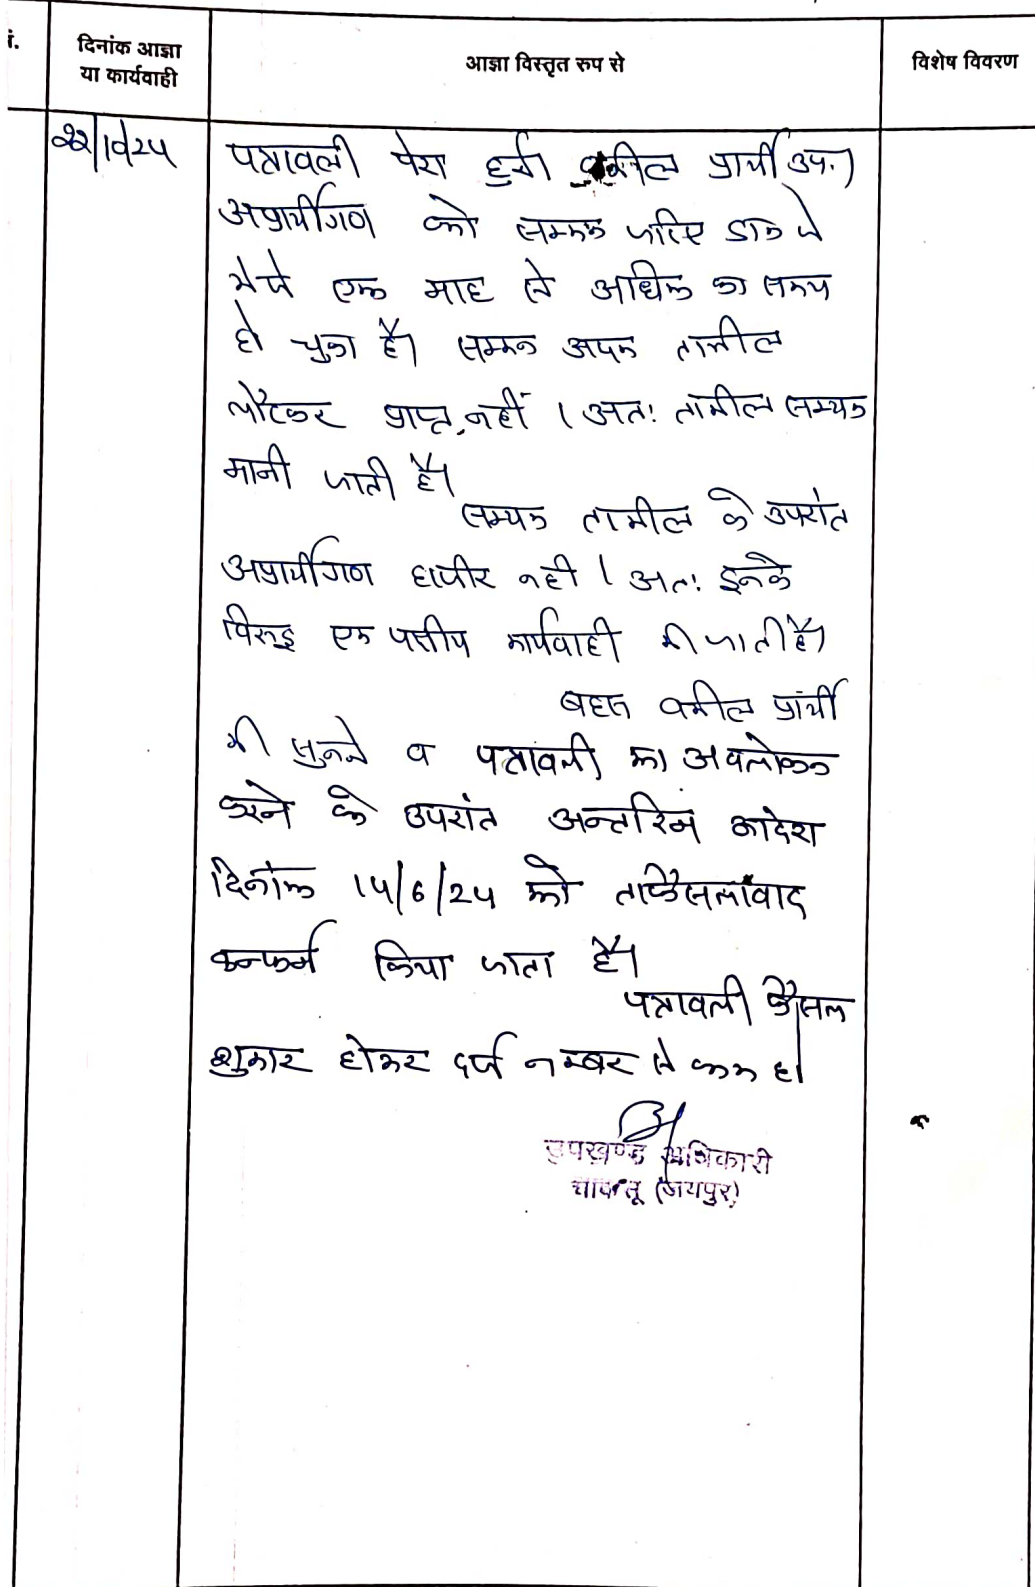 सं.
दिनांक आज्ञा
या कार्यवाही
आज्ञा विस्तृत रुप से
विशेष विवरण
पत्रावली पेश हुई। वकील प्रार्थी उप.।
अप्रार्थीगण को सम्मन जरिए डाक से
भेजे एक माह से अधिक का समय
हो चुका है। सम्मन अदम तामील
लौटकर प्राप्त नहीं। अतः तामील सम्यक
मानी जाती है।
सम्यक तामील के उपरांत
अप्रार्थीगण हाजीर नही। अतः इनके
विरुद्ध एक पक्षीय कार्यवाही की जाती है।
बहस वकील प्रार्थी
की सुनने व पत्रावली का अवलोकन
करने के उपरांत अन्तरिम आदेश
दिनांक 14/6/24 को ताफैसलावाद
कन्फर्म किया जाता है।
पत्रावली फैसल
शुमार होकर दर्ज नम्बर से कम हो
उपखण्ड अधिकारी
चाकसू (जयपुर)